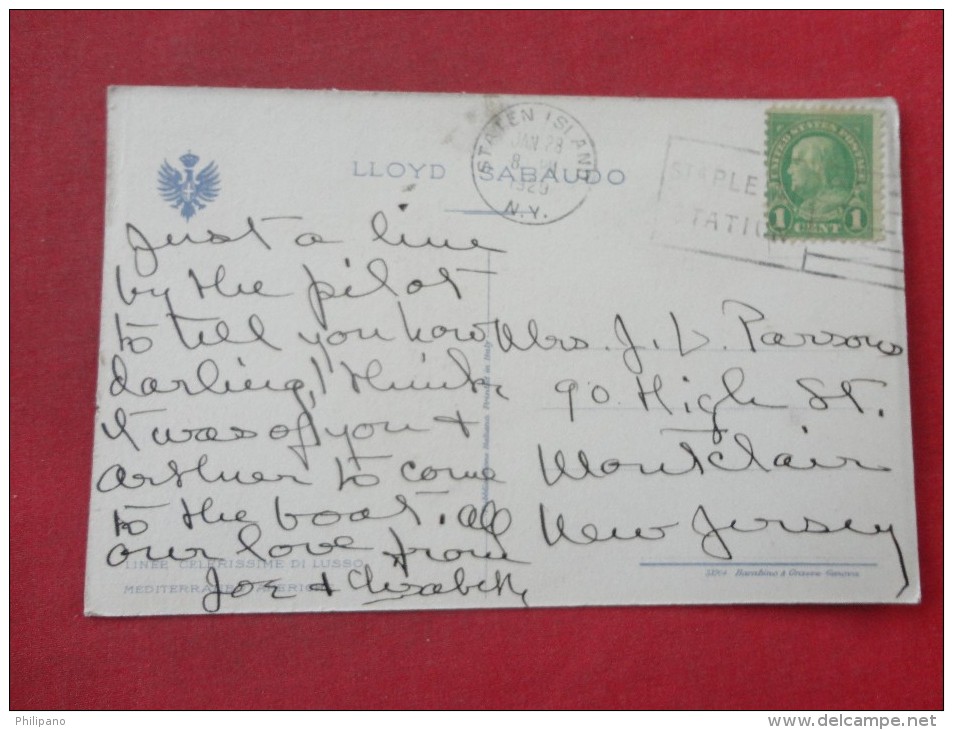 LLOYD SABAUDO
STATEN ISLAND
JAN 28
8
N.Y.
STAPLE
STATION
UNITED STATES POSTAGE
1 CENT 1
Just a line
by the pilot
to tell you how
darling I think
it was of you +
arthur to come
to the boat. all
our love from
Joe + Elizabeth
Mrs. J. V. Parsons
90 High St.
Montclair
New Jersey
LINEE CELERISSIME DI LUSSO
MEDITERRANEO AMERICHE
Printed in Italy
Barabino & Graeve - Genova
Philipano
www.delcampe.net